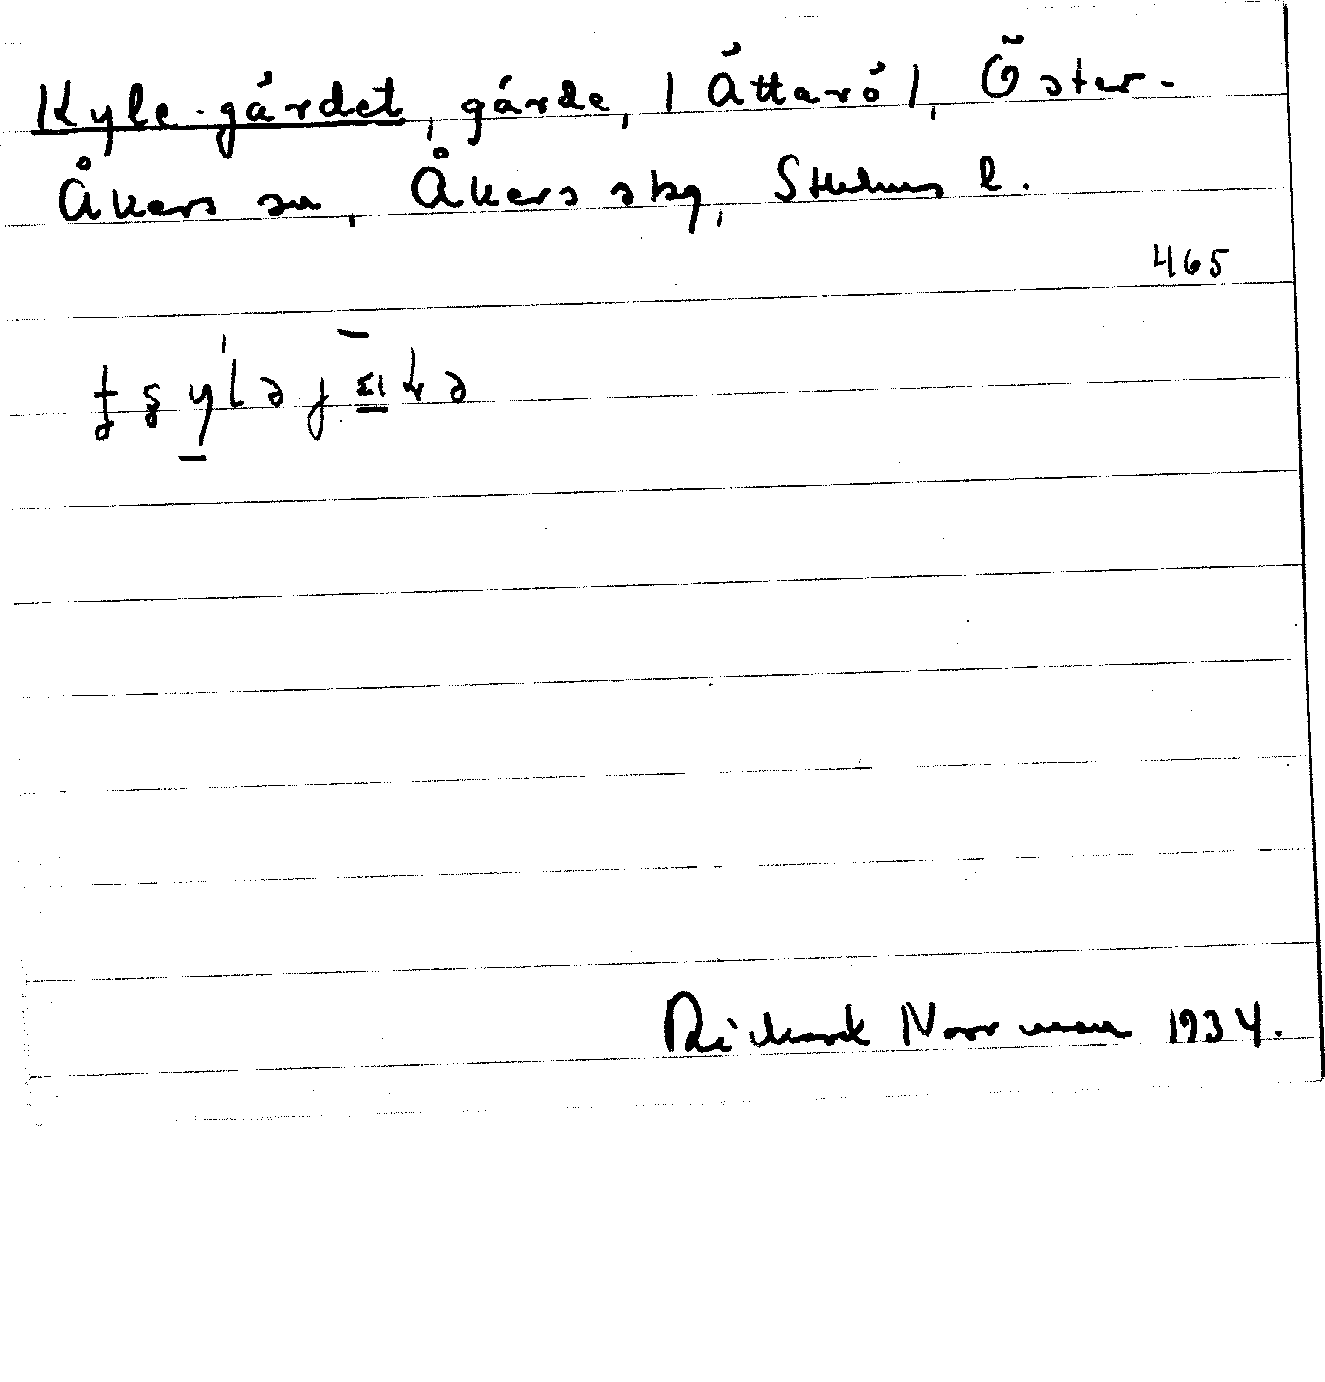 Kyle-gärdet, gärde, (Ättarö), Öster-
Åkers sn, Åkers skg, Sthlms l.
465
Rickard Norrman 1934.